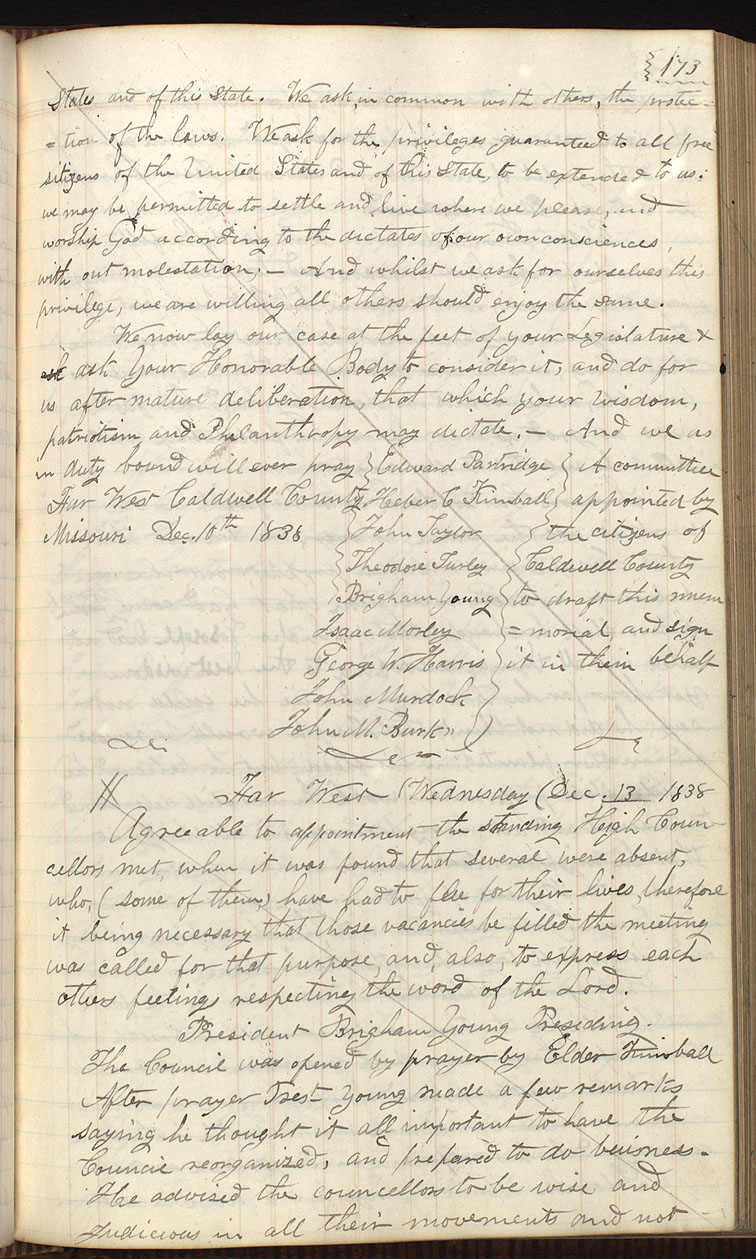 173
States and of this State. We ask, in common with others, the protec=
=tion of the laws. We ask for the privileges guaranteed to all free
sitizens of the United States and of this State, to be extended to us:
we may be permitted to settle and live where we please, and
worship God according to the dictates of our own consciences,
with out molestation;— And whilst we ask for ourselves this
privilege, we are willing all others should enjoy the same.
We now lay our case at the feet of your Legislature &
ask Your Honorable Body to consider it, and do for
us after mature deliberation, that which your wisdom,
patriotism and Philanthropy may dictate.— And we as
in duty bound will ever pray } Edward Partridge } A committee
Far West Caldwell County } Heber C Kimball } appointed by
Missouri Dec. 10th 1838 } John Taylor } the citizens of
} Theodore Turley } Caldwell County
} Brigham Young } to draft this mem
Isaac Morley } =morial, and sign
George W. Harris } it in their behalf
John Murdock }
John M. Burk }
Far West (Wednesday (Dec. 13 1838
Agreeable to appointment the standing High Coun
cellors met, when it was found that several were absent,
who, (some of them) have had to flee for their lives, therefore
it being necessary that those vacancies be filled the meeting
was called for that purpose, and, also, to express each
others feelings respecting the word of the Lord.
President Brigham Young Presiding.
The Council was opened by prayer by Elder Kimball
After prayer Prest Young made a few remarks
saying he thought it all important to have the
Council reorganized, and prepared to do buisness.
He advised the councellors to be wise and
Judicious in all their movements and not